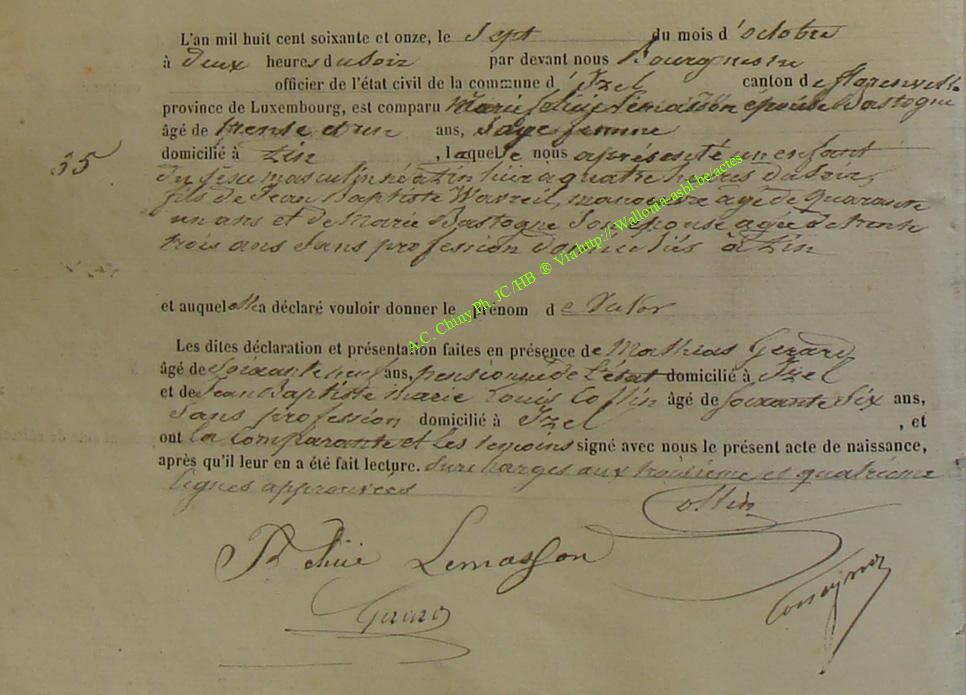 L'an mil huit cent soixante et onze, le Sept du mois d'octobre
à deux heures du Soir par devant nous Bourgmestre
officier de l'état civil de la commune d'Izel canton de florenville
province de Luxembourg, est comparu Marie Lemasson épouse Bastogne
âgé de trente et un ans, Sage femme
35
domicilié à Izin, laquelle nous a présenté un enfant
du sexe masculin né à Izin hier à quatre heures du Soir,
fils de Jean Baptiste Warreil, manoeuvre âgé de quarante
un ans et de Marie Bastogne Son épouse agée de trente
trois ans Sans profession domiciliés à Izin
et auquel elle a déclaré vouloir donner le prénom de
A.C. Chiny Ph. JC/HB ® Via http://Wallonia-asbl.be/actes
Les dites déclaration et présentation faites en présence de Mathias Gerard
âgé de Soixante neuf ans, pensionné de l'état domicilié à Izel
et de Jean Baptiste Marie Louis Collin âgé de Soixante Six ans,
Sans profession domicilié à Izel, et
ont la Comparante et les temoins signé avec nous le présent acte de naissance,
après qu'il leur en a été fait lecture. Surcharges aux troisième et quatrieme
lignes approuvées
Collin
Lemasson
Gerard